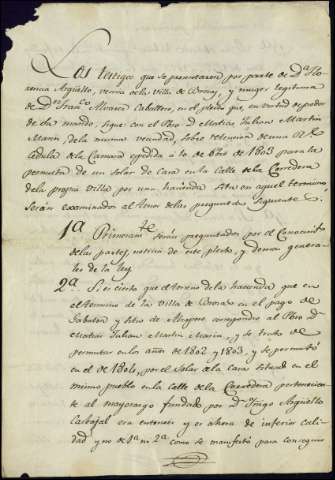 Los Testigos que se presentaren por parte de D.ª
Arguello, vecina de la Villa de Bornos, y muger legitima
de D.n Fran.co Alvarez Caballero, en el pleito que, en virtud de poder
de su marido, sigue con el Pbro. D. Matias Julian Martin
Marin, de la misma vecindad, sobre retencion de una Rl.
cedula de la Camara expedida á 10 de de 1803 para la
permuta de un Solar de Casa en la Calle de la Corredera
de la propia Villa por una hacienda sita en aquel termino,
serán examinados al tenor de las preguntas siguientes.
1.ª Primeram.te serán preguntados por el Conocim.to
de las partes, noticia de este pleyto, y demas genera-
les de la ley.
2.ª Si es cierto que el terreno de la hacienda que en
el termino de la Villa de Bornos en el pago de
y sitio de correspondio al Pbro. D.
Matias Julian Martin Marin, y se trató de
permutar en los años de 1802 y 1803, y se permutó
en el de 1804, por el Solar de la Casa situado en el
mismo pueblo en la Calle de la Corredera pertenecien-
te al mayorazgo fundado por D. Iñigo Argüello
Carbajal era entonces y es ahora de inferior cali-
dad y no de 1.ª ni 2.ª como se manifestó para conseguir